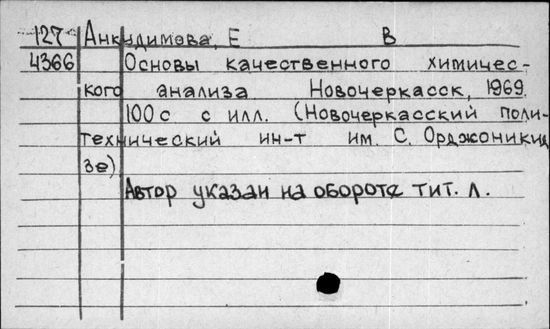 127 Анкудимова, Е В
4366 Основы качественного химичес-
кого анализа Новочеркасск, 1969.
100с с илл. (Новочеркасский поли-
технический ин-т им. С. Орджоникид
зе)
Автор указан на обороте тит. л.